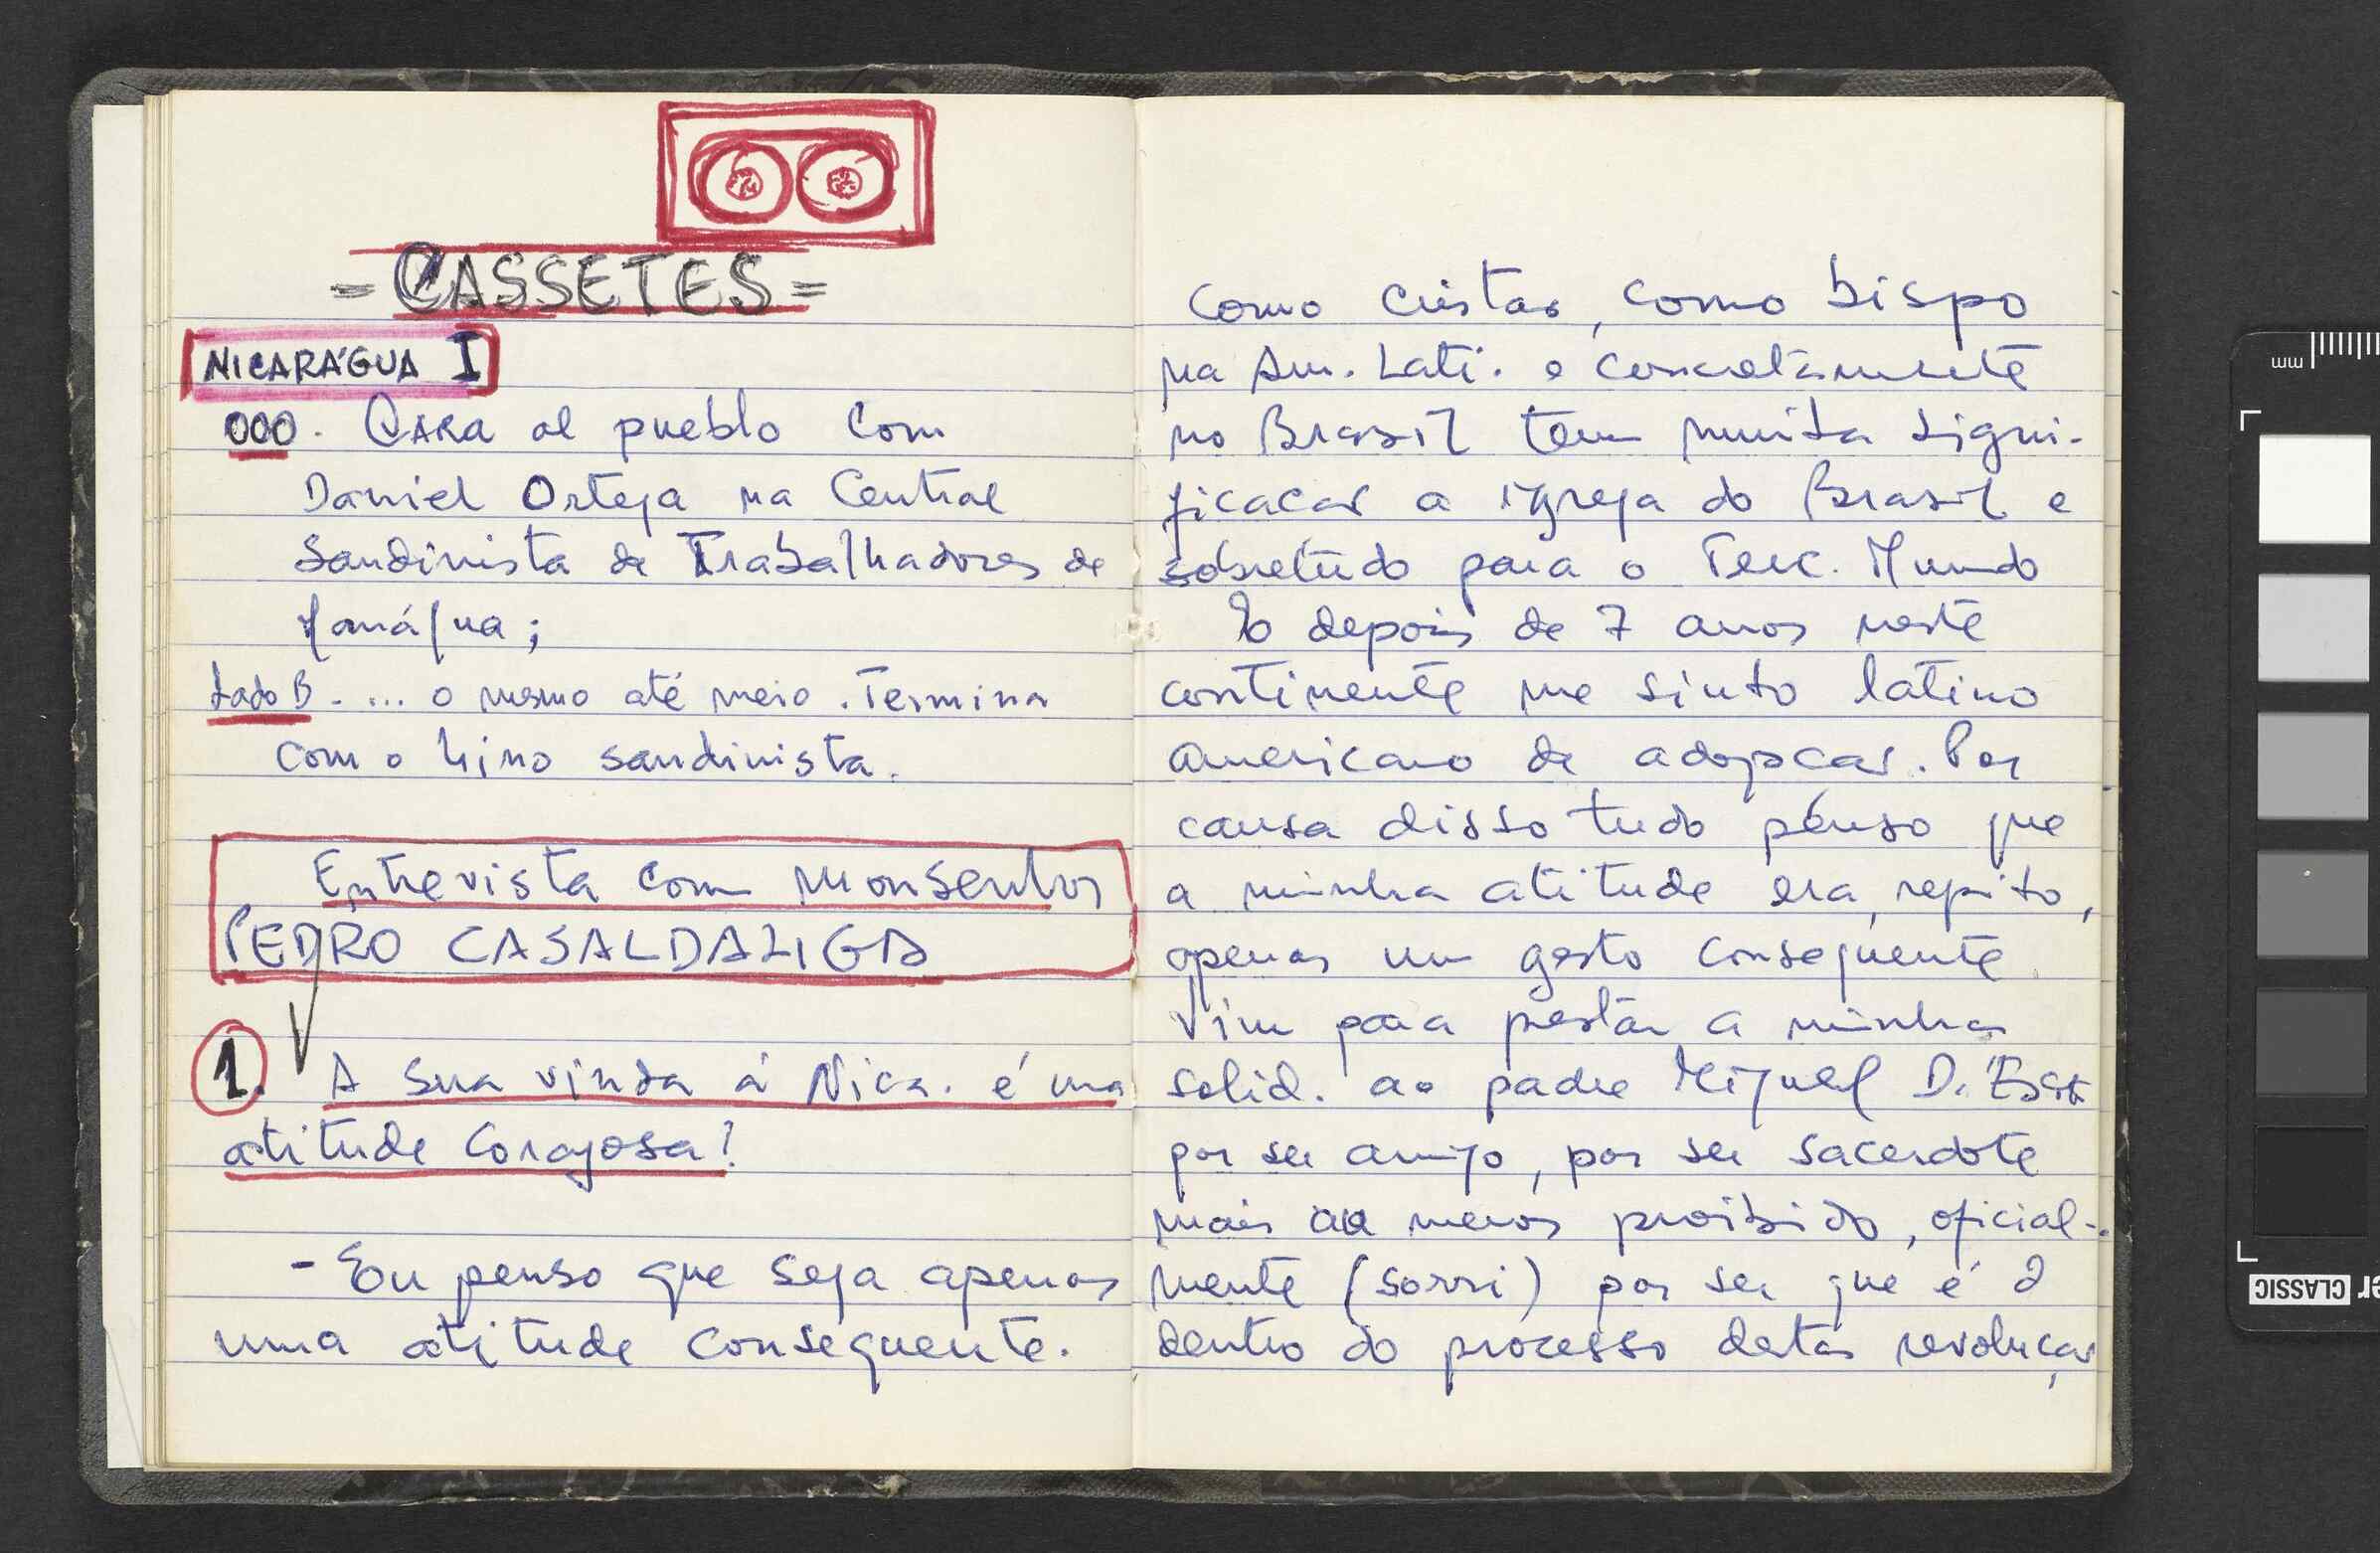 = CASSETES =
NICARÁGUA I
000. CARA al pueblo com
Daniel Ortega na Central
Sandinista de Trabalhadores de
Manágua;
Lado B. ... o mesmo até meio. Termina
com o hino sandinista.
Entrevista com Monsenhor
PEDRO CASALDALIGA
1. A sua vinda à Nica. é uma
atitude corajosa?
- Eu penso que seja apenas
uma atitude consequente.
Como cristão, como bispo
na Am. Lati. e concretamente
no Brasil tem muita signi-
ficacão a igreja do Brasil e
sobretudo para o Terc. Mundo
E depois de 7 anos neste
continente me sinto latino
americano de adopcão. Por
causa disso tudo penso que
a minha atitude era, repito,
apenas um gesto consequente.
Vim para prestar a minha
solid. ao padre Miguel D'Esct
por ser amigo, por ser sacerdote
mais ou menos proibido, oficial-
mente (sorri) por ser que é e
dentro do processo desta revolução
mm
CLASSIC